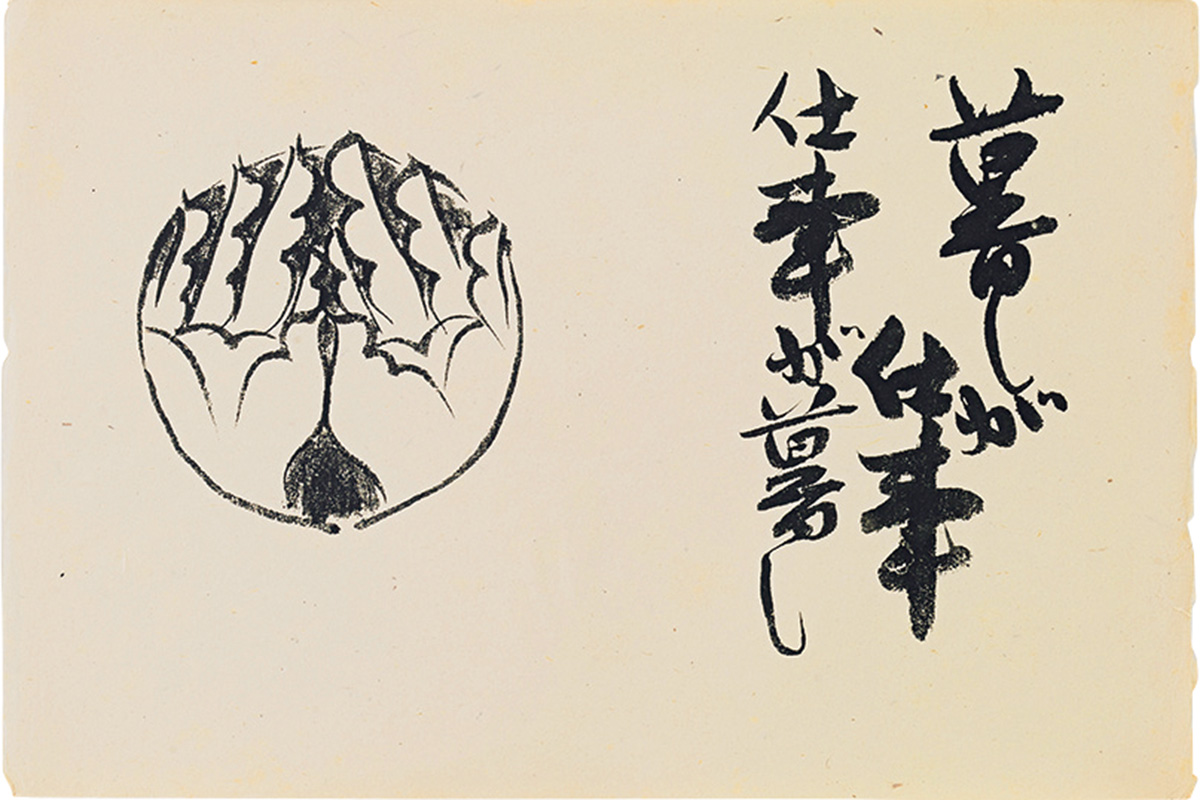 暮しが
仕事
仕事が
暮し